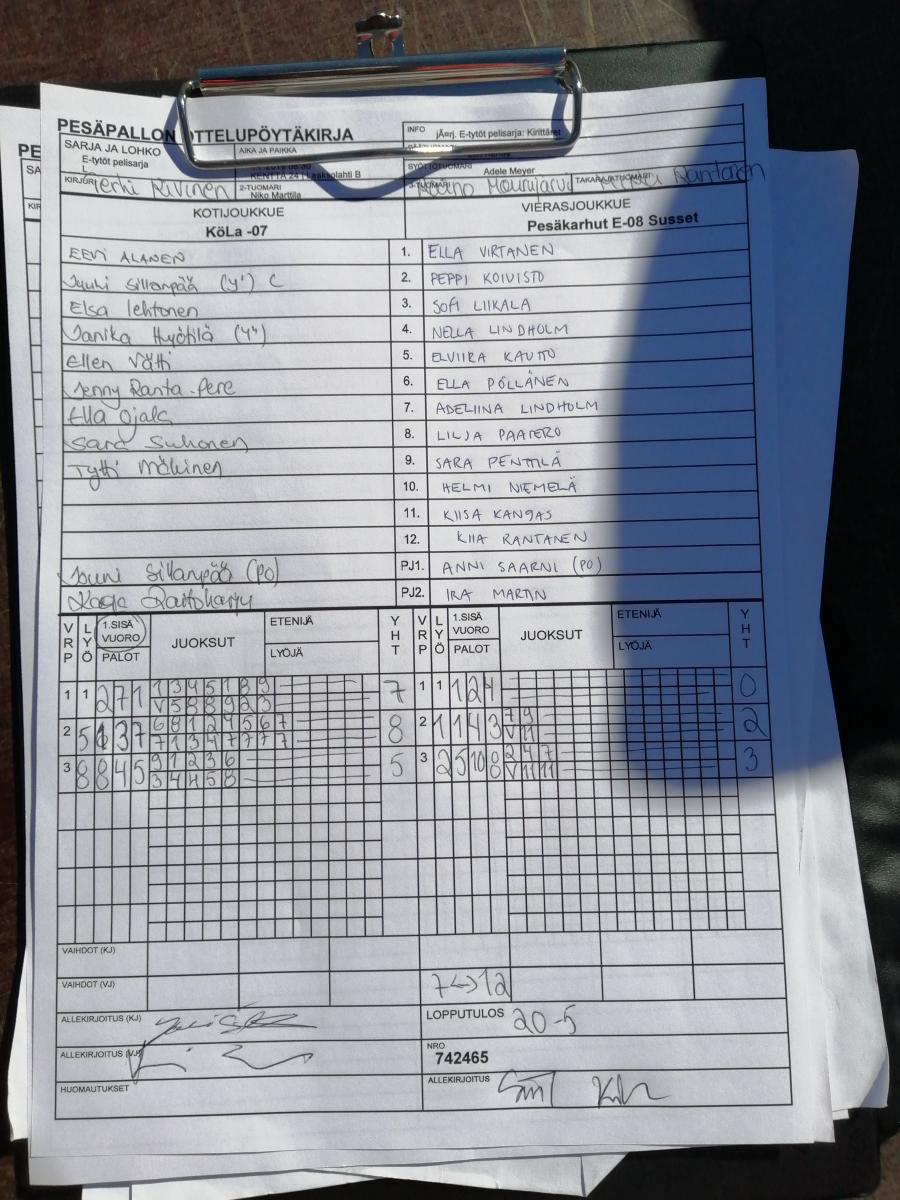 PESÄPALLON OTTELUPÖYTÄKIRJA
INFO jÃ¤rj. E-tytöt pelisarja: Kirittäret
SARJA JA LOHKO
E-tytöt pelisarja
AIKA JA PAIKKA
KENTTÄ 24 | Laaksolahti B
SYÖTTÖTUOMARI
Adele Meyer
KIRJURI
Rivinen
2-TUOMARI
Niko Marttila
3-TUOMARI
TAKARAJATUOMARI
Rantanen
KOTIJOUKKUE
KöLa -07
VIERASJOUKKUE
Pesäkarhut E-08 Susset
EEVI ALANEN 1. ELLA VIRTANEN
Juuli Sillanpää (y') C 2. PEPPI KOIVISTO
Elsa lehtonen 3. SOFI LIIKALA
Janika Hyötilä (y'') 4. NELLA LINDHOLM
Ellen Vätti 5. ELVIIRA KAUTO
Jenny Ranta-Pere 6. ELLA PÖLLÄNEN
Ella Ojala 7. ADELIINA LINDHOLM
Sara Suhonen 8. LILJA PAATERO
Tytti Mäkinen 9. SARA PENTTILÄ
10. HELMI NIEMELÄ
11. KIISA KANGAS
12. KIIA RANTANEN
Jouni Sillanpää (PO) PJ1. ANNI SAARNI (PO)
PJ2. IRA MARTIN
VRP LYÖ 1.SISÄ VUORO PALOT JUOKSUT ETENIJÄ LYÖJÄ YHT VRP LYÖ 1.SISÄ VUORO PALOT JUOKSUT ETENIJÄ LYÖJÄ YHT
1 1 2 7 1 1 3 4 5 1 8 9 7 1 1 1 2 4 0
V 5 8 8 9 2 3
2 5 1 3 7 6 8 1 2 4 5 6 7 8 2 1 1 4 3 7 9 2
7 1 3 4 7 7 7 7 V 11
3 8 8 4 5 9 1 2 3 6 5 3 2 5 10 8 2 4 7 3
3 4 4 5 8 V 11 11
VAIHDOT (KJ)
VAIHDOT (VJ) 7<->12
ALLEKIRJOITUS (KJ)
LOPPUTULOS 20-5
ALLEKIRJOITUS (VJ)
NRO
742465
HUOMAUTUKSET
ALLEKIRJOITUS